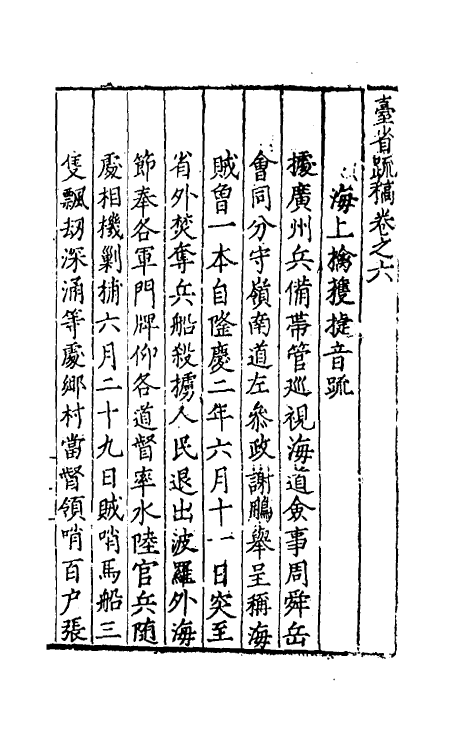 臺省䟽稿卷之六
海上擒獲捷音䟽
據廣州兵備帶管廵視海道僉事周舜岳
會同分守嶺南道左叅政謝鵬舉呈稱海
賊曾一本自隆慶二年六月十一日突至
省外焚奪兵船殺擄人民退出波羅外海
節奉各軍門牌仰各道督率水陸官兵隨
處相機剿捕六月二十九日賊哨馬船三
隻飄刼深涌等處鄉村當督領哨百户張